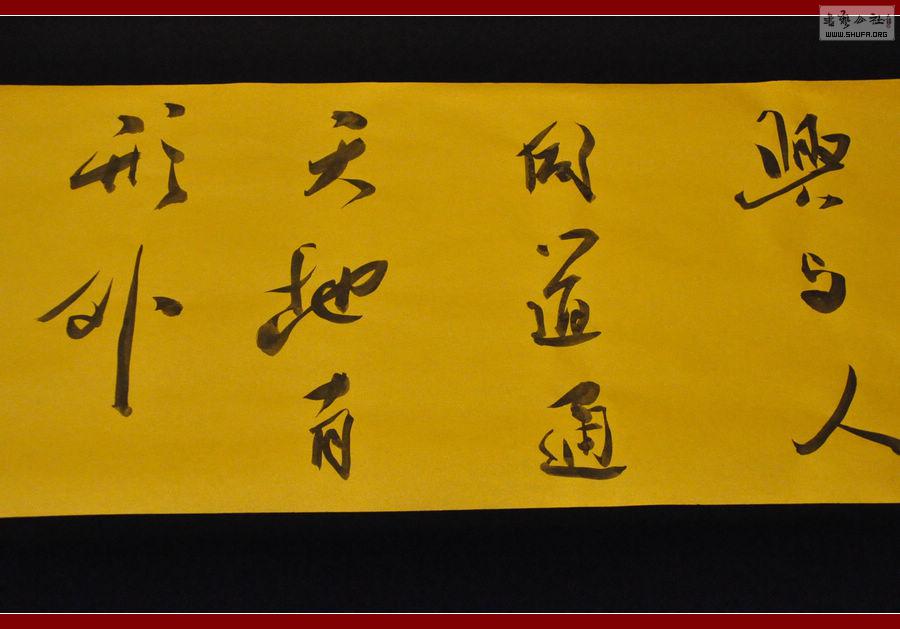 興与人
同道通
天地有
形外
書藝公社
WWW.SHUFA.ORG